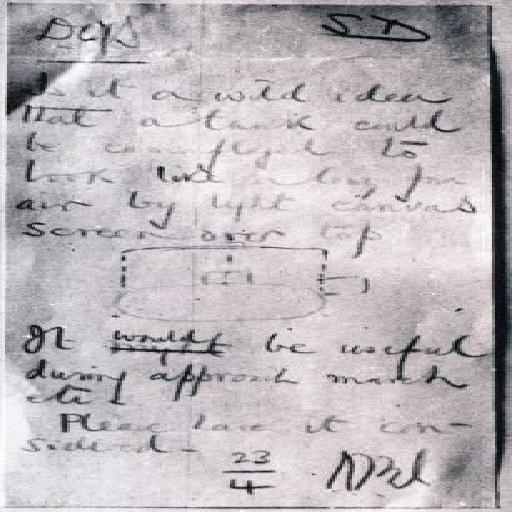 DGS SD
Is it a wild idea
that a tank could
be camflgd to
look like a lorry from
air by light canvas
screen over top
It would be useful
during approach march
etc!
Please have it con-
sidered -
23
4